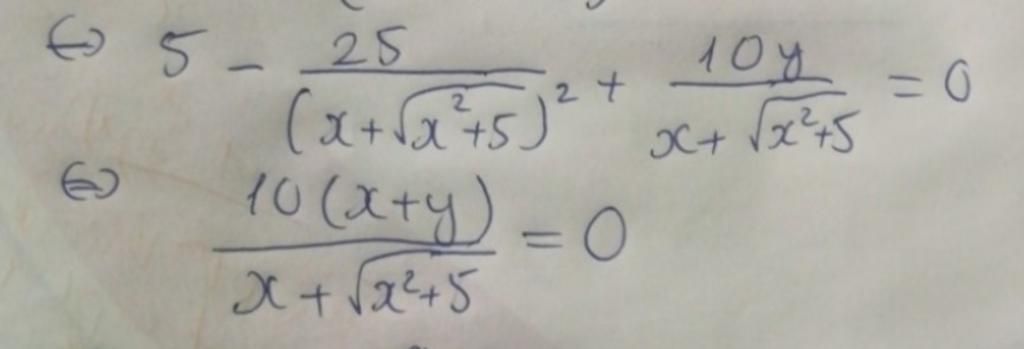 ⇔ 5 - \frac{25}{(x+\sqrt{x^2+5})^2} + \frac{10y}{x+\sqrt{x^2+5}} = 0
⇔ \frac{10(x+y)}{x+\sqrt{x^2+5}} = 0